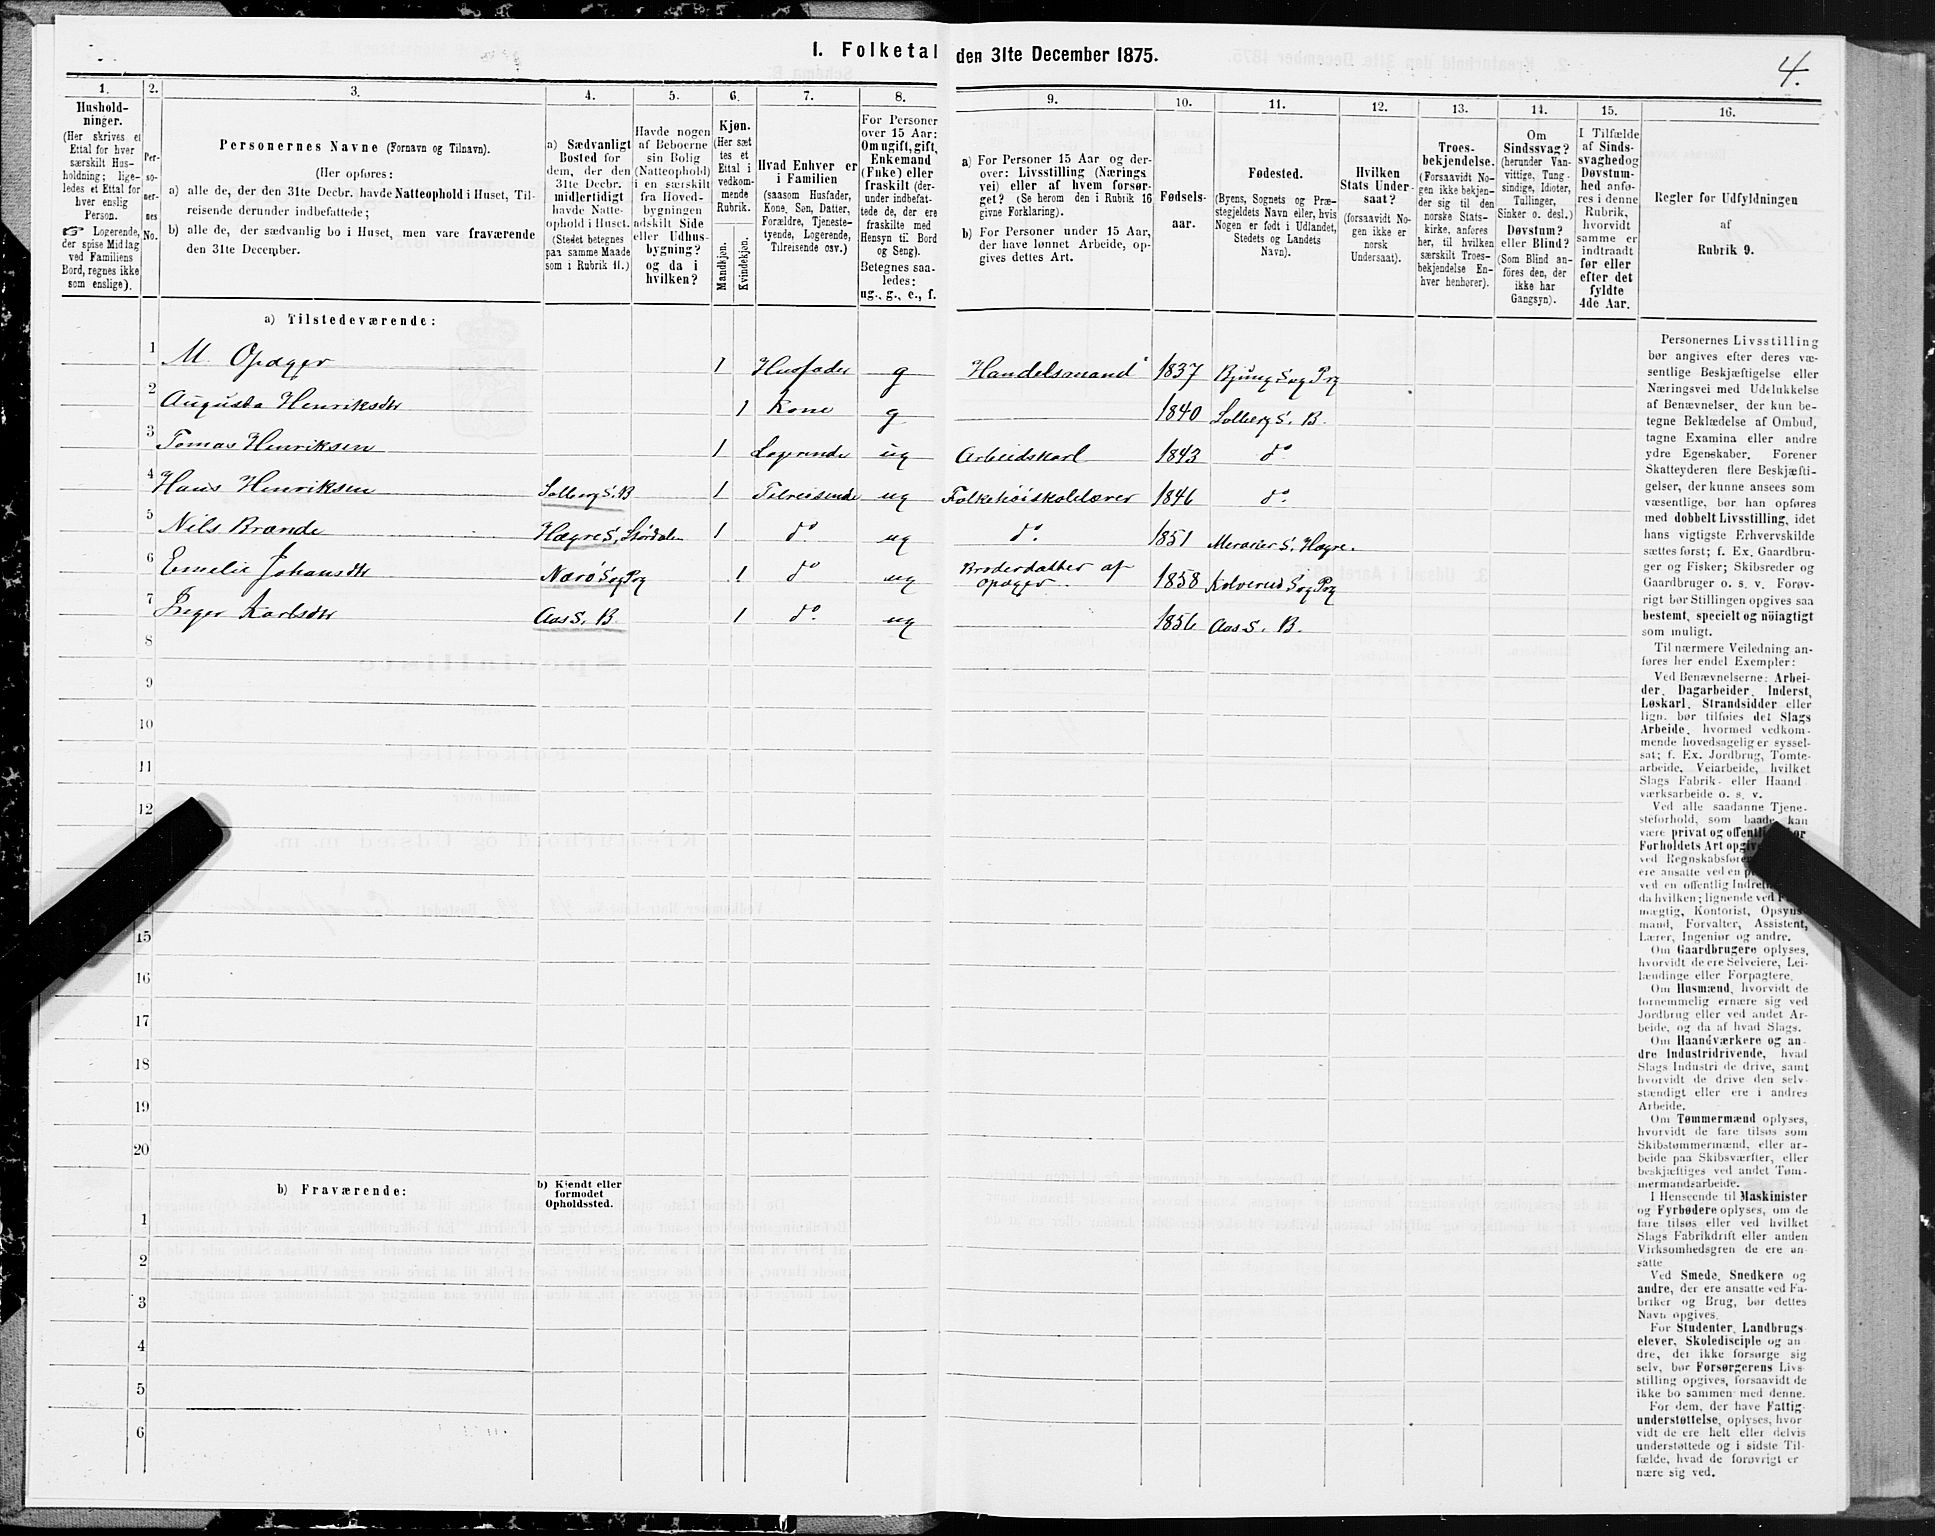 I. Folketal den 31te December 1875.
4.
1.
Hushold-
ninger.
(Her skrives et
Ettal for hver
særskilt Hus-
holdning; lige-
ledes et Ettal for
hver enslig
Person.
☞ Logerende,
der spise Middag
ved Familiens
Bord, regnes ikke
som enslige).
2.
Per-
so-
ner-
nes
No.
3.
Personernes Navne (Fornavn og Tilnavn).
(Her opføres:
a) alle de, der den 31te Decbr. havde Natteophold i Huset, Til-
reisende derunder indbefattede;
b) alle de, der sædvanlig bo i Huset, men vare fraværende
den 31te December.
4.
a) Sædvanligt
Bosted for
dem, der den
31te Decbr.
midlertidigt
havde Natte-
ophold i Huset.
(Stedet betegnes
paa samme Maade
som i Rubrik 11.)
5.
Havde nogen
af Beboerne
sin Bolig
(Natteophold)
i en særskilt
fra Hoved-
bygningen
adskilt Side
eller Udhus-
bygning?
og da i
hvilken?
6.
Kjøn.
(Her sæt
tes et
Ettal i
vedkom-
mende
Rubrik.
Mandkjøn.
Kvindekjøn.
7.
Hvad Enhver er
i Familien
(saasom Husfader,
Kone, Søn, Datter,
Forældre, Tjeneste-
tyende, Logerende,
Tilreisende osv.)
8.
For Personer
over 15 Aar:
Om ugift, gift,
Enkemand
(Enke) eller
fraskilt (der-
under indbefat-
tede de, der ere
fraskilte med
Hensyn til Bord
og Seng).
Betegnes saa-
ledes:
ug., g., e., f.
9.
a) For Personer 15 Aar og der-
over: Livsstilling (Nærings
vei) eller af hvem forsør-
get? (Se herom den i Rubrik 16
givne Forklaring).
b) For Personer under 15 Aar,
der have lønnet Arbeide, op-
gives dettes Art.
10.
Fødsels-
aar.
11.
Fødested.
(Byens, Sognets og Præ-
stegjeldets Navn eller, hvis
Nogen er født i Udlandet,
Stedets og Landets
Navn).
12.
Hvilken
Stats Under-
saat?
(forsaavidt No-
gen ikke er
norsk
Undersaat).
13.
Troes-
bekjendelse.
(Forsaavidt No-
gen ikke bekjen-
der sig til den
norske Stats-
kirke, anføres
her, til hvilken
særskilt Troes-
bekjendelse En-
hver henhører).
14.
Om
Sindssvag?
(herunder Van-
vittige, Tung-
sindige, Idioter,
Tullinger,
Sinker o. desl.)
Døvstum?
eller Blind?
(Som Blind an-
føres den, der
ikke har
Gangsyn).
15.
I Tilfælde
af Sinds-
svaghed og
Døvstum-
hed anfø-
res i denne
Rubrik,
hvorvidt
samme er
indtraadt
før eller
efter det
fyldte
4de Aar.
16.
Regler for Udfyldningen
af
Rubrik 9.
a) Tilstedeværende:
1 M. Opdager 1 Husfader g Handelsmand 1837 Bjung S og Prg
2 Augusta Henriksdtr 1 Kone g 1840 Solberg S. B.
3 Tomas Henriksen 1 Logerende ug Arbeidskarl 1843 do
4 Hans Henriksen Solberg S. B 1 Tilreisende ug Folkehøiskolelærer 1846 do.
5 Nils Brænde Hægre S, Stördalen 1 do ug do. 1851 Meraker S. Hægre.
6 Emelie Johansdtr Nærö S og Prg 1 do ug Broderdatter af Opdager. 1858 Kolvereid S og Prg
7 Inger Karlsdtr Aas S. B. 1 do. ug 1856 Aas S. B.
8
9
10
11
12
15
16
17
18
19
20
b) Fraværende:
b) Kjendt eller
formodet
Opholdssted.
1
2
3
4
5
6
Personernes Livsstilling
bør angives efter deres væ-
sentlige Beskjæftigelse eller
Næringsvei med Udelukkelse
af Benævnelser, der kun be-
tegne Beklædelse af Ombud,
tagne Examina eller andre
ydre Egenskaber. Forener
Skatteyderen flere Beskjæfti-
gelser, der kunne ansees som
væsentlige, bør han opføres
med dobbelt Livsstilling, idet
hans vigtigste Erhvervskilde
sættes først; f. Ex. Gaardbru-
ger og Fisker; Skibsreder og
Gaardbruger o. s. v. Forøv-
rigt bør Stillingen opgives saa
bestemt, specielt og nöiagtigt
som muligt.
Til nærmere Veiledning an-
føres her endel Exempler:
Ved Benævnelserne: Arbei-
der, Dagarbeider, Inderst,
Løskarl, Strandsidder eller
lign. bør tilføies det Slags
Arbeide, hvormed vedkom-
mende hovedsagelig er syssel-
sat; f. Ex. Jordbrug, Tomte-
arbeide, Veiarbeide, hvilket
Slags Fabrik- eller Haand
værksarbeide o. s. v.
Ved alle saadanne Tjene-
steforhold, som baade kan
være privat og offentlig bør
Forholdets Art opgives
ved Regnskabsfører
ere ansatte ved en
ved en offentlig Indret
da hvilken; lignende ved
mægtig, Kontorist, Opsyns
mand, Forvalter, Assistent,
Lærer, Ingeniør og andre.
Om Gaardbrugere oplyses,
hvorvidt de ere Selveiere, Lei-
lændinge eller Forpagtere.
Om Husmænd, hvorvidt de
fornemmelig ernære sig ved
Jordbrug eller ved andet Ar-
beide, og da af hvad Slags.
Om Haandværkere og an-
dre Industridrivende, hvad
Slags Industri de drive, samt
hvorvidt de drive den selv-
stændigt eller ere i andres
Arbeide.
Om Tømmermænd oplyses,
hvorvidt de fare tilsøs som
Skibstømmermænd, eller ar-
beide paa Skibsværfter, eller
beskjæftiges ved andet Tøm-
mermandsarbeide.
I Henseende til Maskinister
og Fyrbødere oplyses, om de
fare tilsøs eller ved hvilket
Slags Fabrikdrift eller anden
Virksomhedsgren de ere an-
satte
Ved Smede, Snedkere og
andre, der ere ansatte ved Fa-
briker og Brug, bør dettes
Navn opgives.
For Studenter, Landbrugs
elever, Skoledisciple og an
dre, der ikke forsørge sig
selv, bør Forsørgerens Livs-
stilling opgives, forsaavidt de
ikke bo sammen med denne.
For dem, der have Fattig-
understøttelse, oplyses, hvor
vidt de ere helt eller delvis
understøttede og i sidste Til-
fælde, hvad de forøvrigt er
nære sig ved.